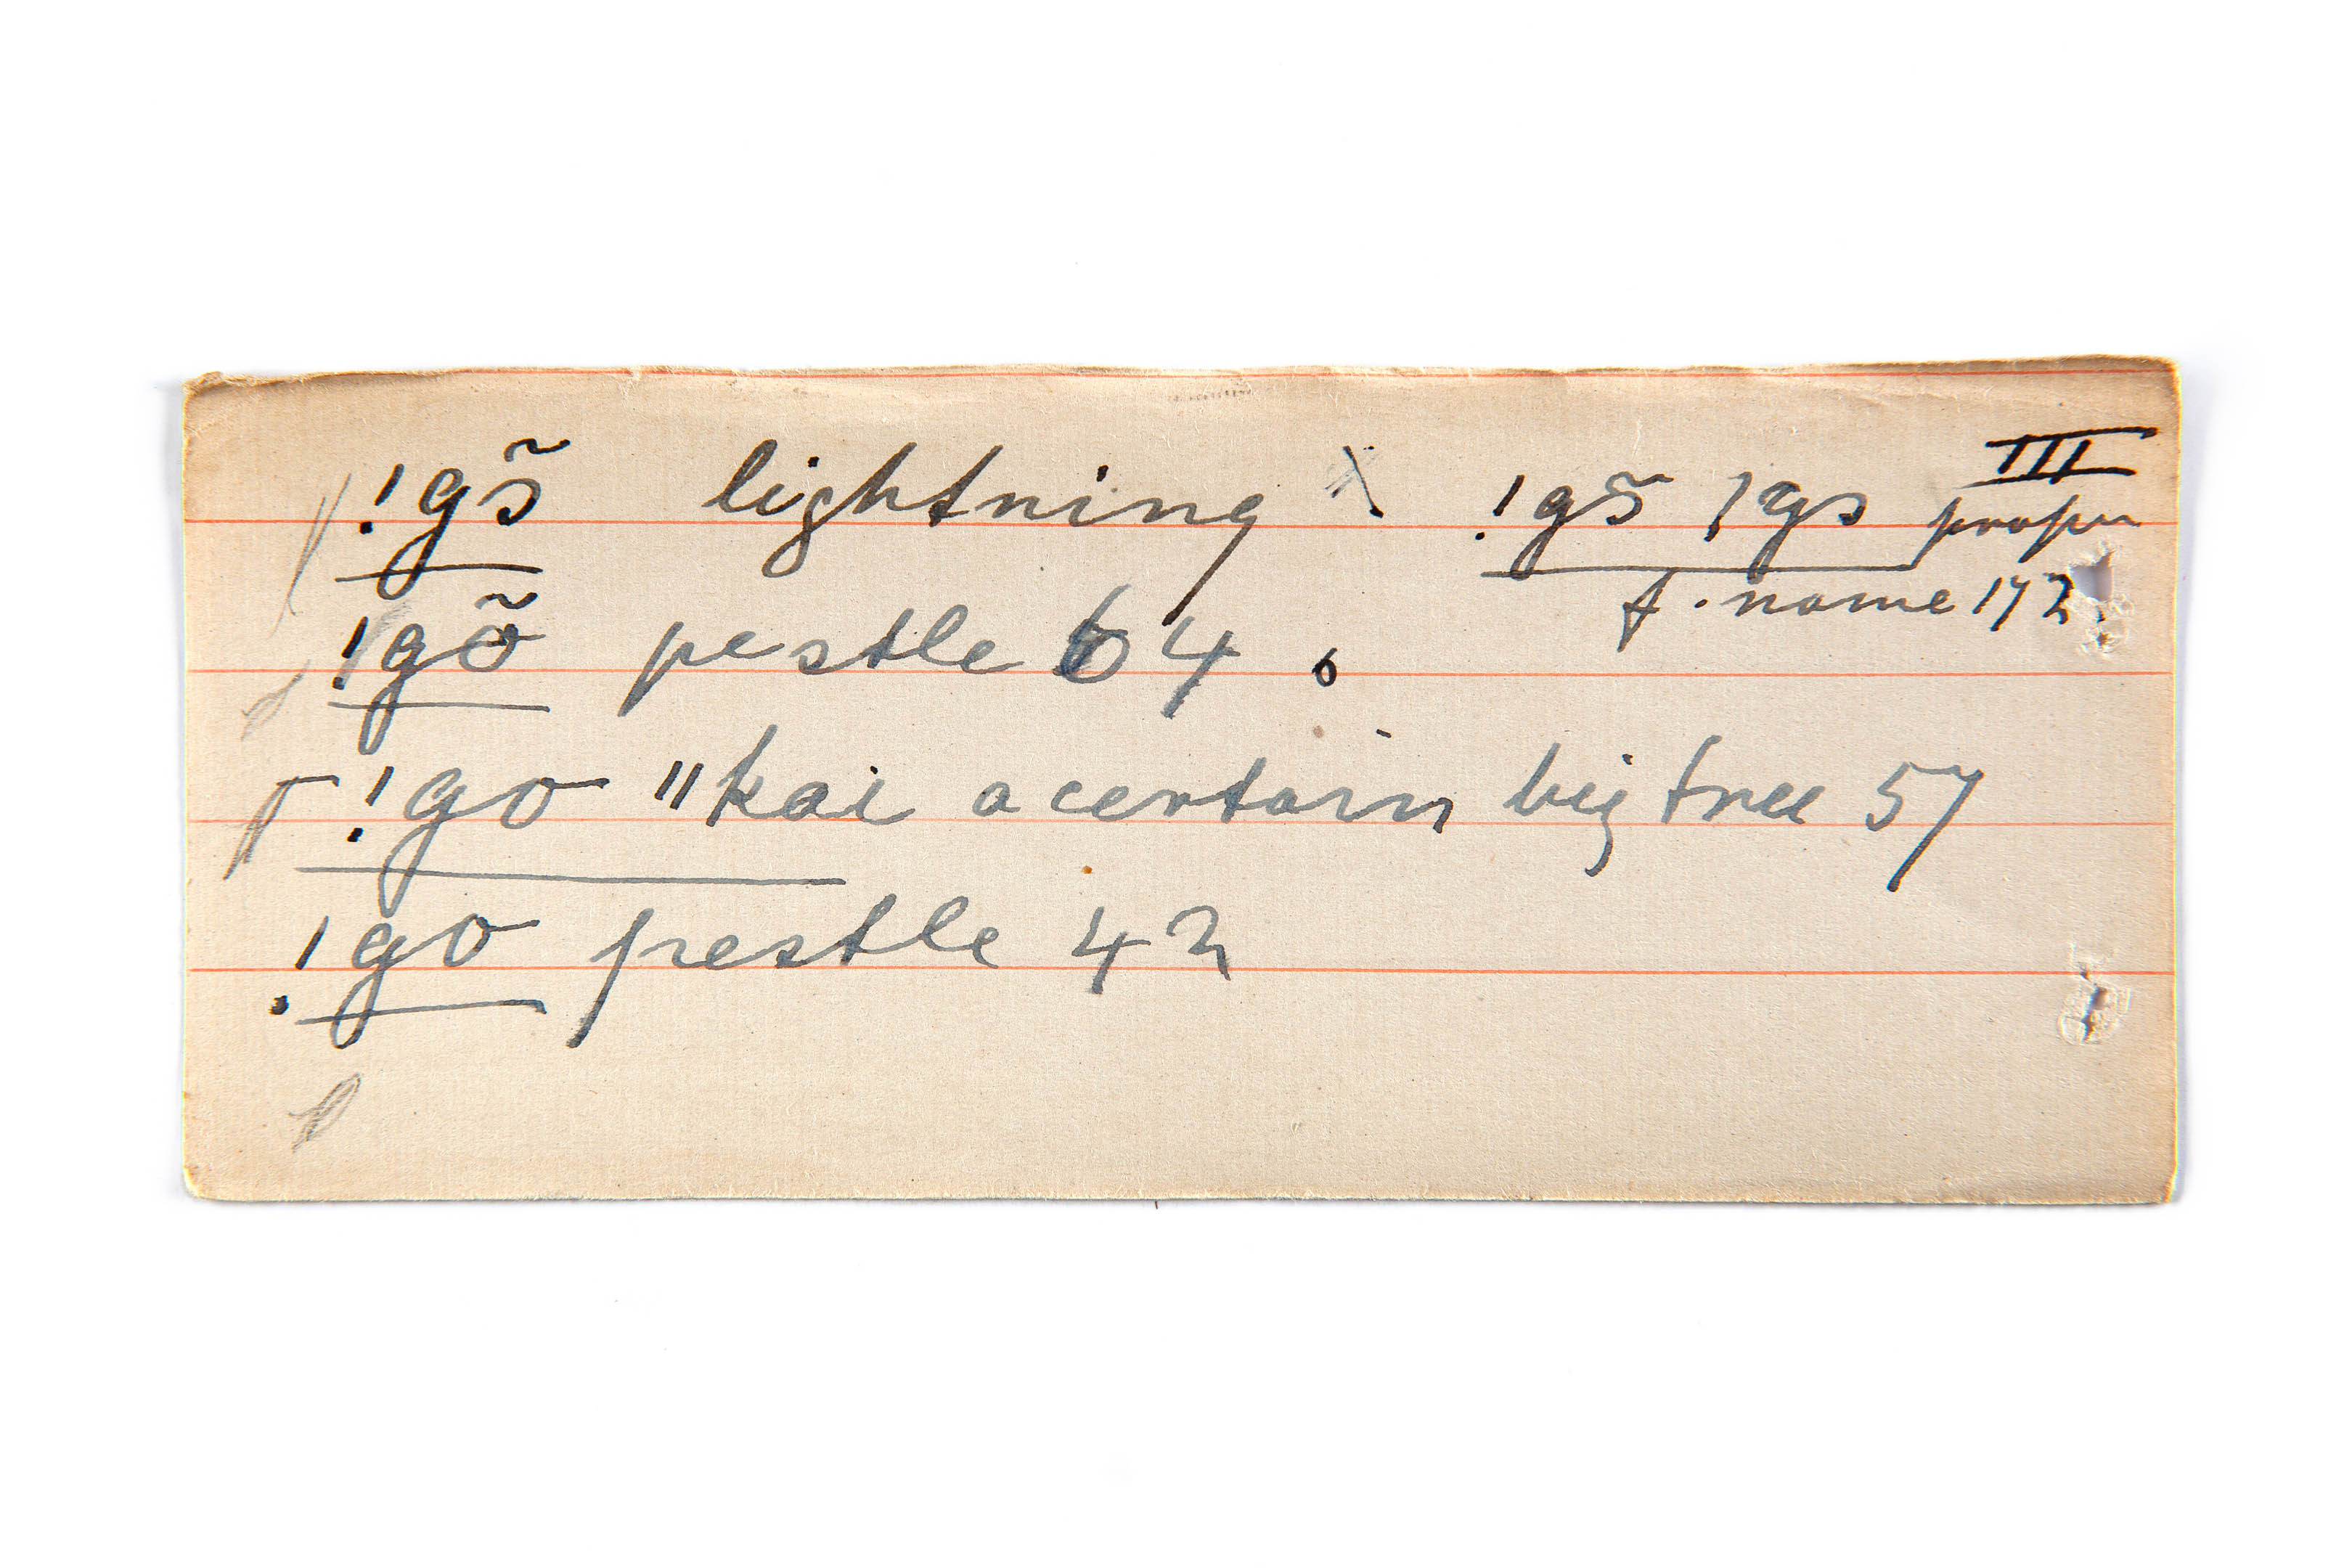 !gɔ̃ lightning x !gɔ̃ !gɔ III
proper
f. name 172
!gõ pestle 64.
!go ǁkai a certain big tree 57
!go pestle 42